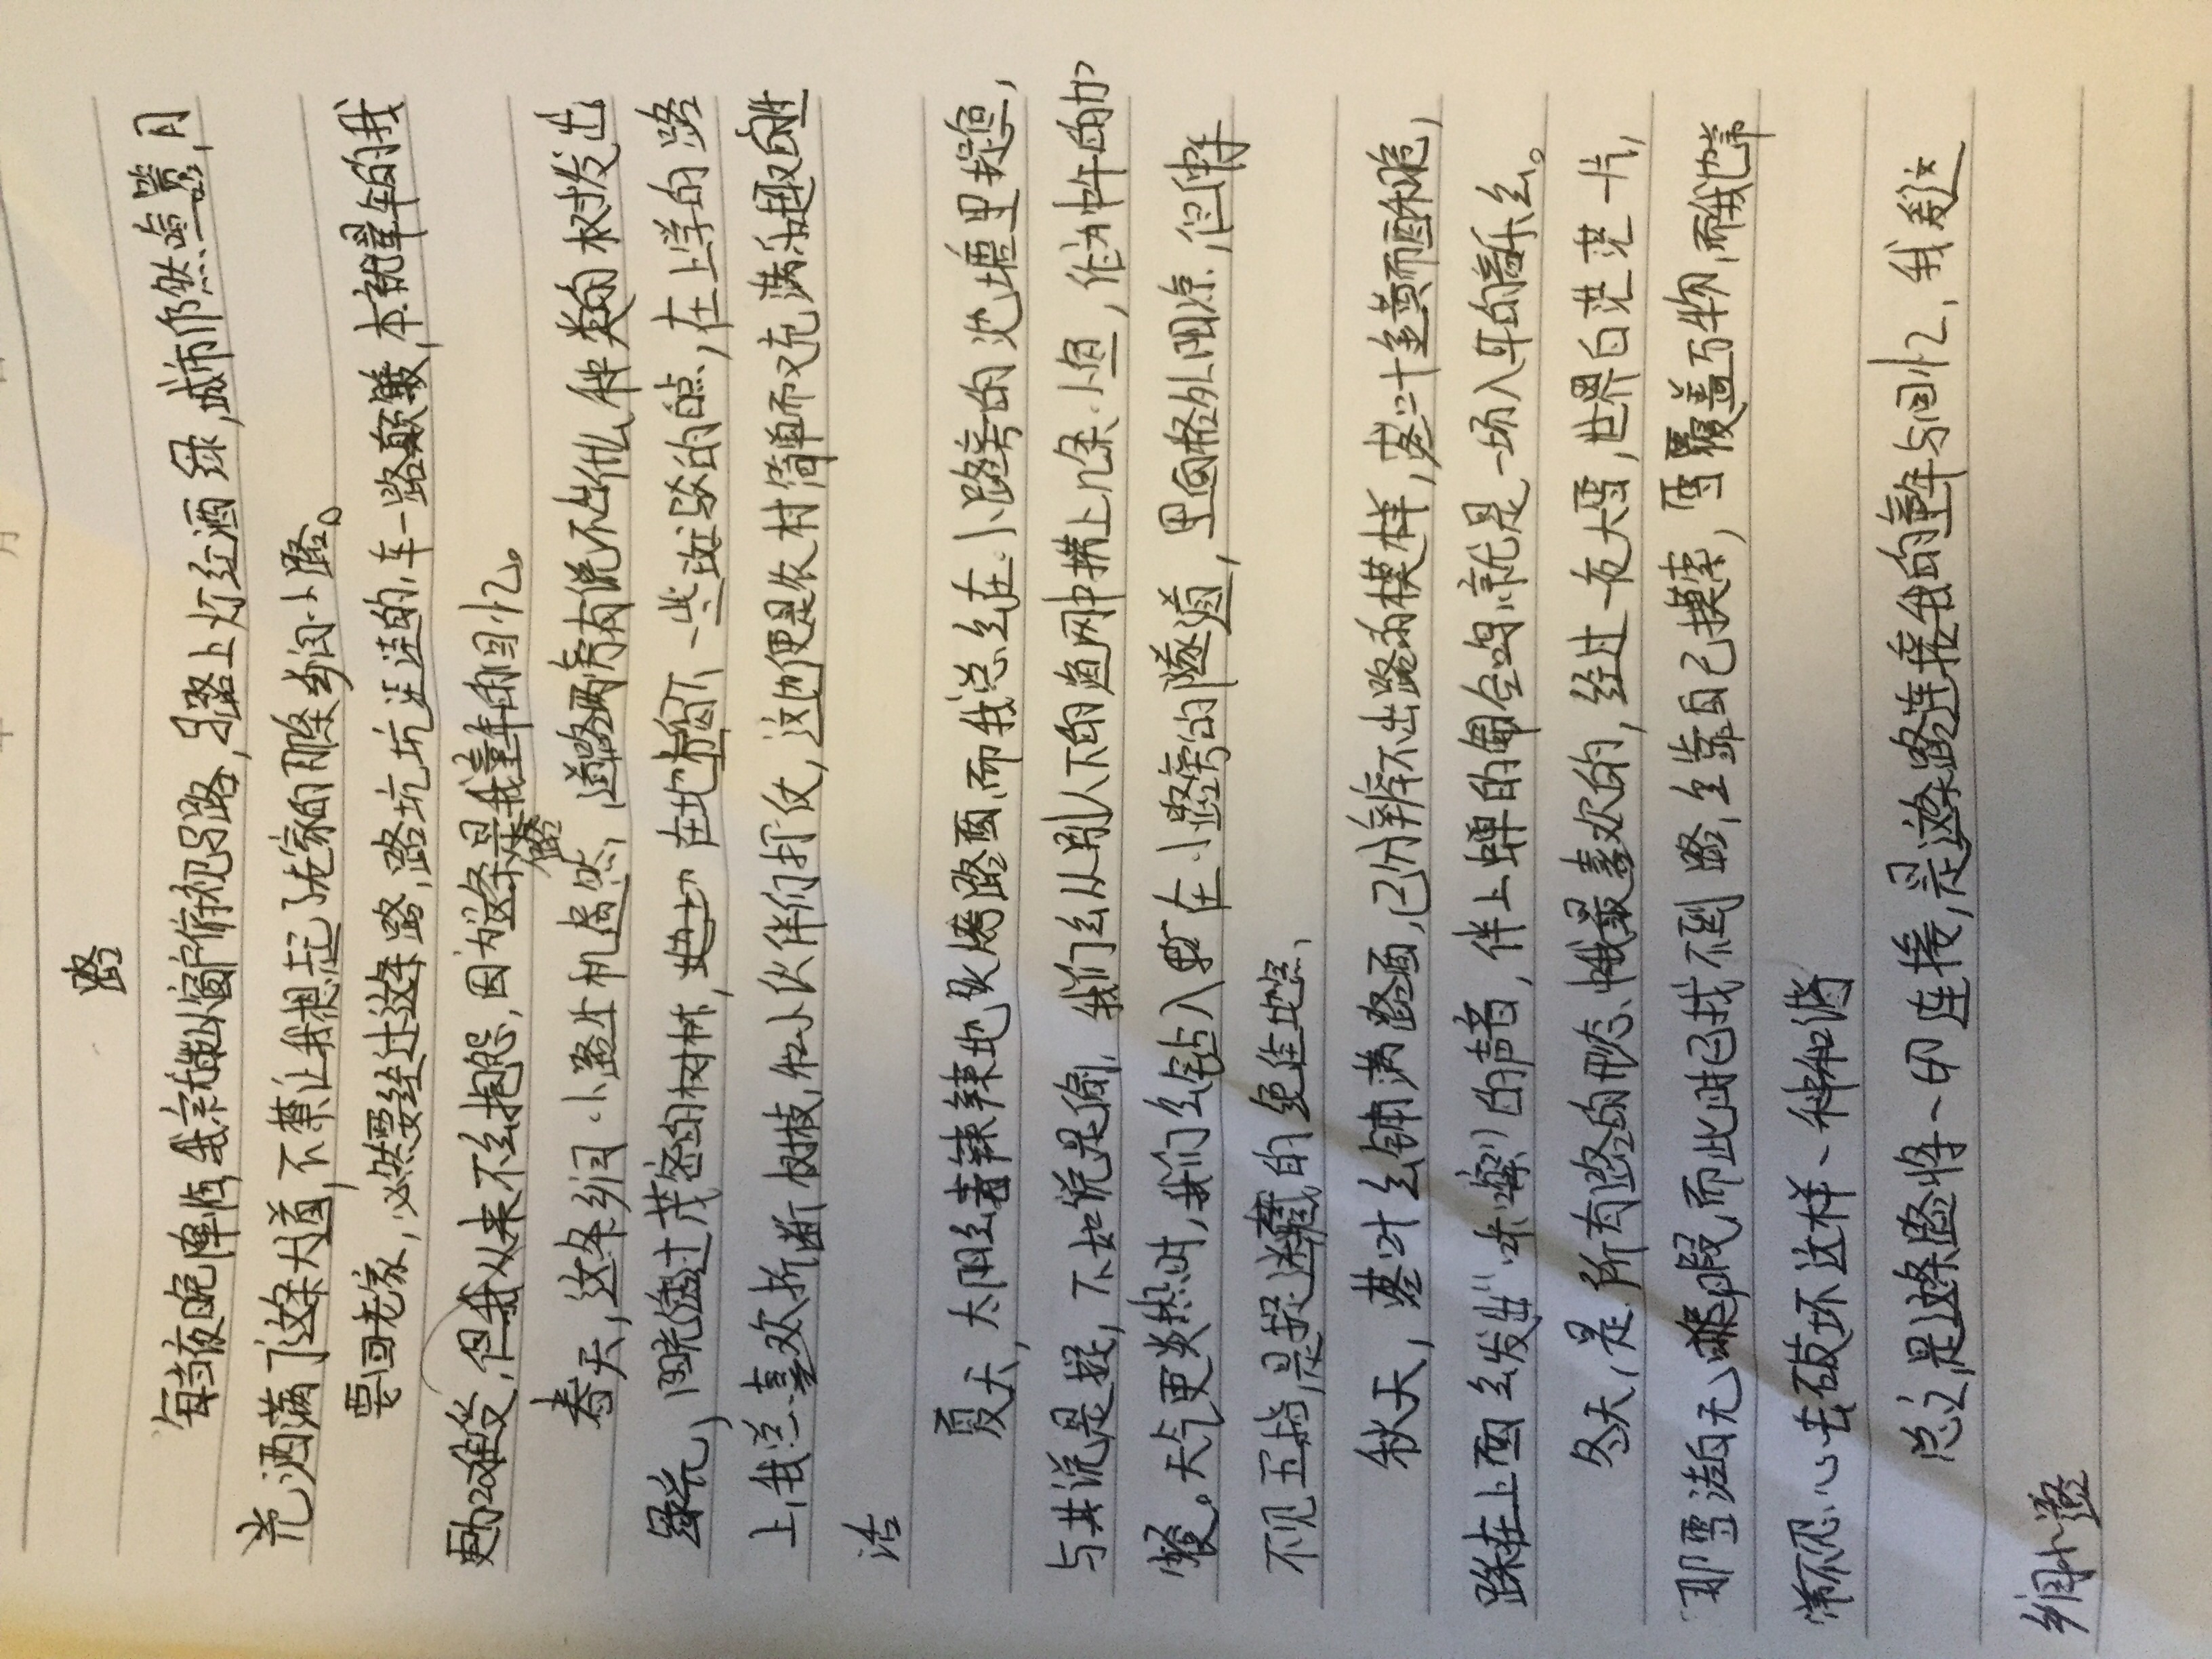 路
每当夜晚降临,我常常从窗户俯视马路,马路上灯红酒绿,城市依然喧嚣,月
光洒满了这条大道,不禁让我想起了老家的那条乡间小路。
要回老家,必然要经过这条路,路坑坑洼洼的,车一路颠簸,本就晕车的我
更加难受,但我从来不会抱怨,因为这条路是我童年的回忆。
春天,这条乡间小路生机盎然,道路两旁有说不出什么种类的树抽发出
绿光,阳光透过茂密的树林,在地上留下一些斑驳的白点,在上学的路
上,我总喜欢折断树枝,和小伙伴们打仗,这也便是农村简单而又充满乐趣的生
活
夏天,太阳会着辣辣地炙烤路面,而我总会在小路旁的池塘里捉鱼,
与其说是捉,不如说是偷,我们会从别人下的渔网中捞上几条小鱼,作为中午的加
餐。天气更炎热时,我们会钻入在小路旁的隧道,里面格外阴凉,但伸手
不见五指,是捉迷藏的绝佳地点、
秋天,落叶会铺满路面,已分辨不出路的模样,落叶金黄而酥脆,
踩在上面会发出“咔嚓”的声音,伴上蝉的偶合鸣,就是一场入耳的音乐会。
冬天,是所有路的形态中我最喜欢的,经过一夜大雪,世界白茫茫一片,
那雪洁白无瑕,而此时已找不到路,全靠自己摸索,雪覆盖万物,而我也常
常不忍心去破坏这样一种和谐
总之,是这条路将一切连接,是这条路连接我的童年与回忆,我爱这
乡间小道